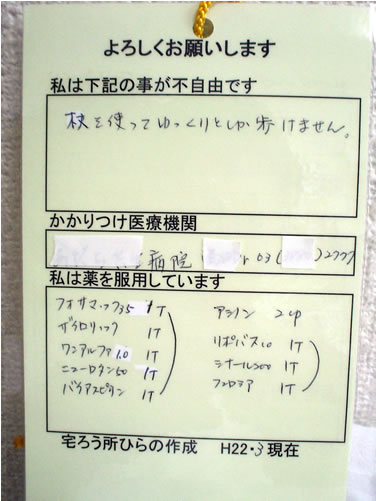 よろしくお願いします
私は下記の事が不自由です
杖を使ってゆっくりとしか歩けません。
かかりつけ医療機関
病院 03( )2777
私は薬を服用しています
フォサマック35 1T
ザイロリック 1T
ワンアルファ1.0 1T
ニューロタン50 1T
バイアスピリン 1T
2cp
リポバス10 1T
1T
1T
宅ろう所ひらの作成 H22・3現在